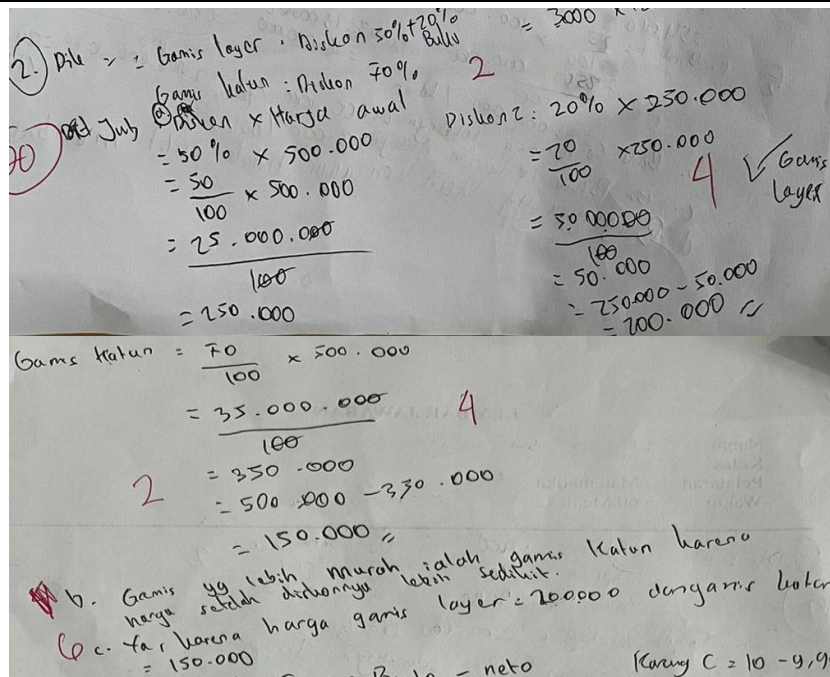 = 3000 ×
2. Dik = : Gamis layer : Diskon 50% + 20%
Gamis katun : Diskon 70%
2
20
Jwb @ Diskon × Harga awal
= 50% × 500.000
= 50/100 × 500.000
= 25.000.000/100
= 250.000
Diskon 2 : 20% × 250.000
= 20/100 × 250.000
4
Gamis layer
= 5.000.000/100
= 50.000
= 250.000 - 50.000
= 200.000 //
Gamis Katun = 70/100 × 500.000
= 35.000.000/100
4
= 350.000
2
= 500.000 - 350.000
= 150.000 //
b. Gamis yg lebih murah ialah gamis katun karena
harga setelah diskonnya lebih sedikit.
6
c. Ya, karena harga gamis layer = 200.000 dan gamis katun
= 150.000
- neto
Karung C = 10 - 9,9